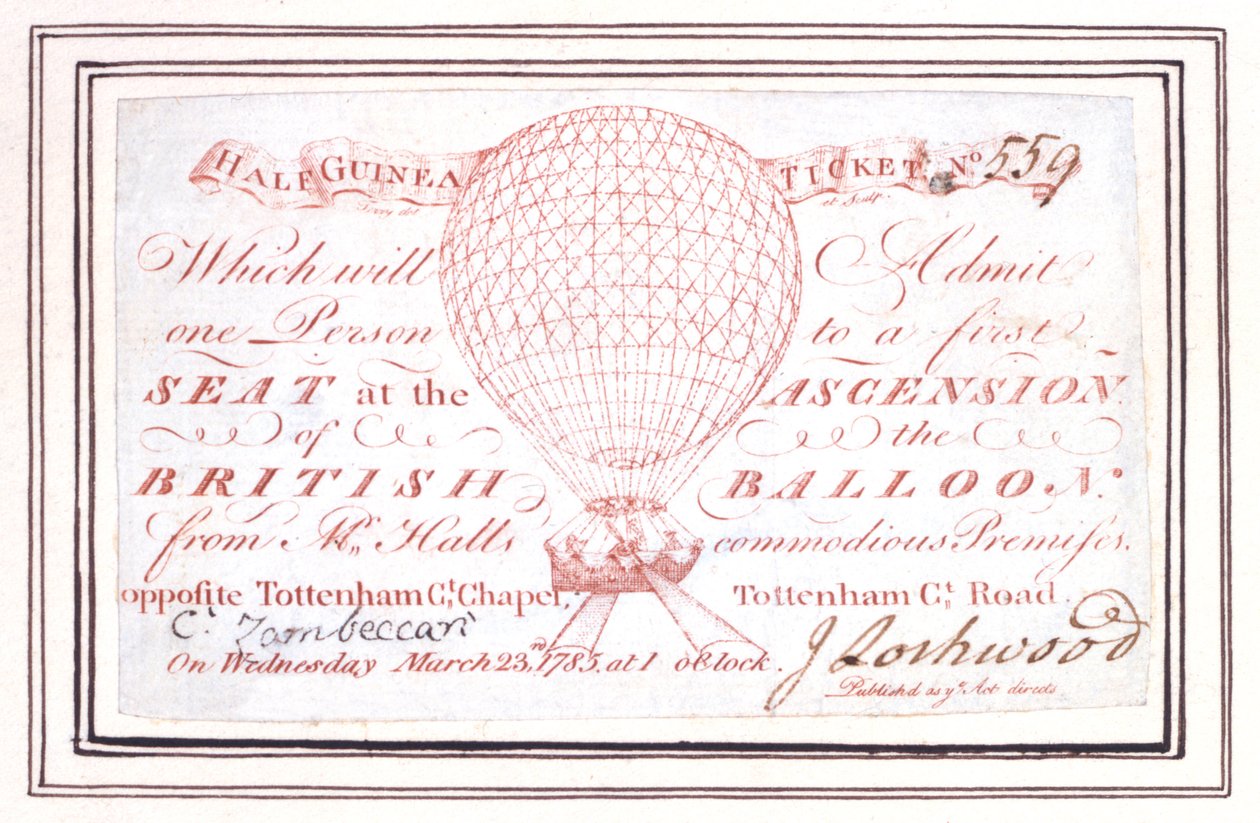 HALF GUINEA TICKET. No 559
et Sculp.
Which will Admit
one Person to a first
SEAT at the ASCENSION.
of the
BRITISH BALLOON.
from Mr. Hall's commodious Premises.
opposite Tottenham Ct. Chapel, Tottenham Ct. Road.
Ct. Zambeccari
On Wednesday March 23,rd 1785. at 1 oClock.
J Lockwood
Publishd as ye. Act directs